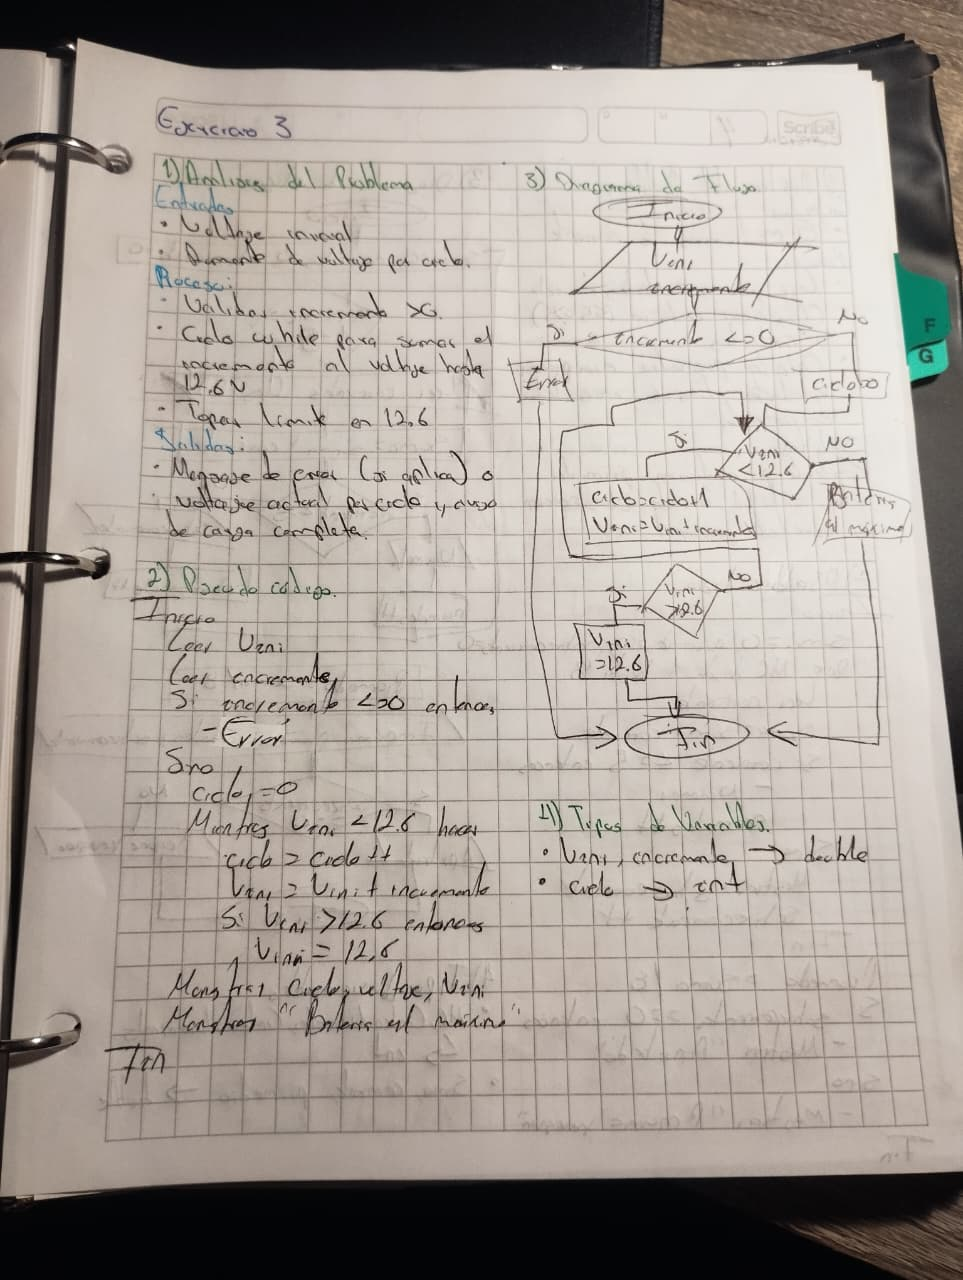 Ejercicio 3
Scribe
1) Analisis del Problema
Entradas
· Voltaje inicial
· Aumento de voltaje por ciclo.
Proceso:
· Validar incremento >0.
· Ciclo while para sumar el
incremento al voltaje hasta
12.6 V
· Topar limite en 12.6
Salidas:
· Mensaje de error (si aplica) o
voltaje actual por ciclo y aviso
de carga completa.
2) Pseudo código.
Inicio
Leer Vini
Leer incremento
Si incremento <=0 entonces
- Error
Sino
ciclo=0
Mientras Vini <12.6 hacer
ciclo = ciclo++
Vini = Vini + incremento
Si Vini >12.6 entonces
Vini = 12.6
Mostrar Ciclo, voltaje, Vini
Mostrar "Bateria al maximo"
Fin
3) Diagrama de Flujo
Inicio
Vini
incremento
incremento <=0
Si
No
Error
ciclo=0
Vini
<12.6
Si
NO
ciclo=ciclo+1
Vini=Vini+incremento
Bateria
al maximo
Vini
>12.6
Si
No
Vini
=12.6
Fin
4) Tipos de Variables.
· Vini, incremento → double
· ciclo → int
F
G